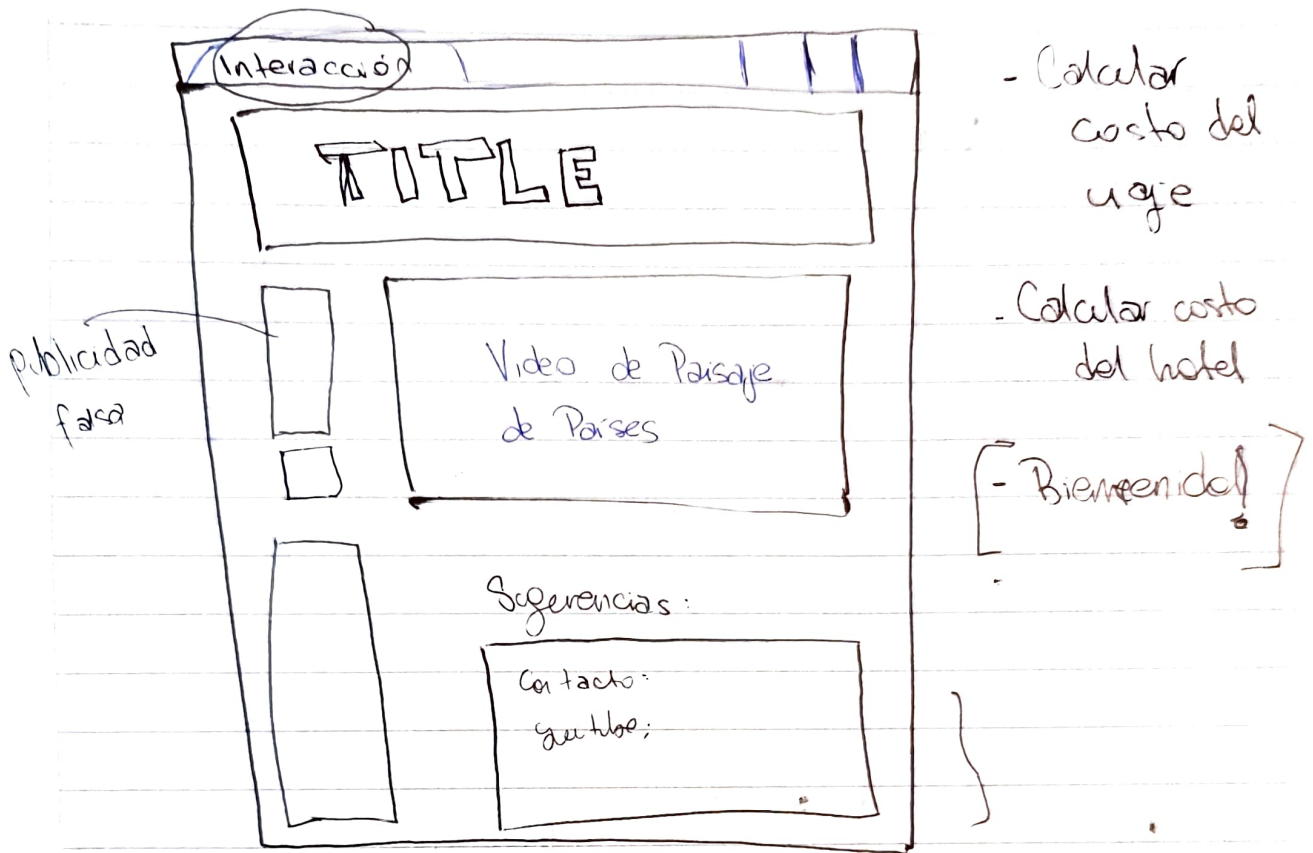 Interacción
TITLE
publicidad
falsa
Video de Paisaje
de Paises
Sugerencias:
Contacto:
- Calcular
costo del
viaje
- Calcular costo
del hotel
- Bienvenido!